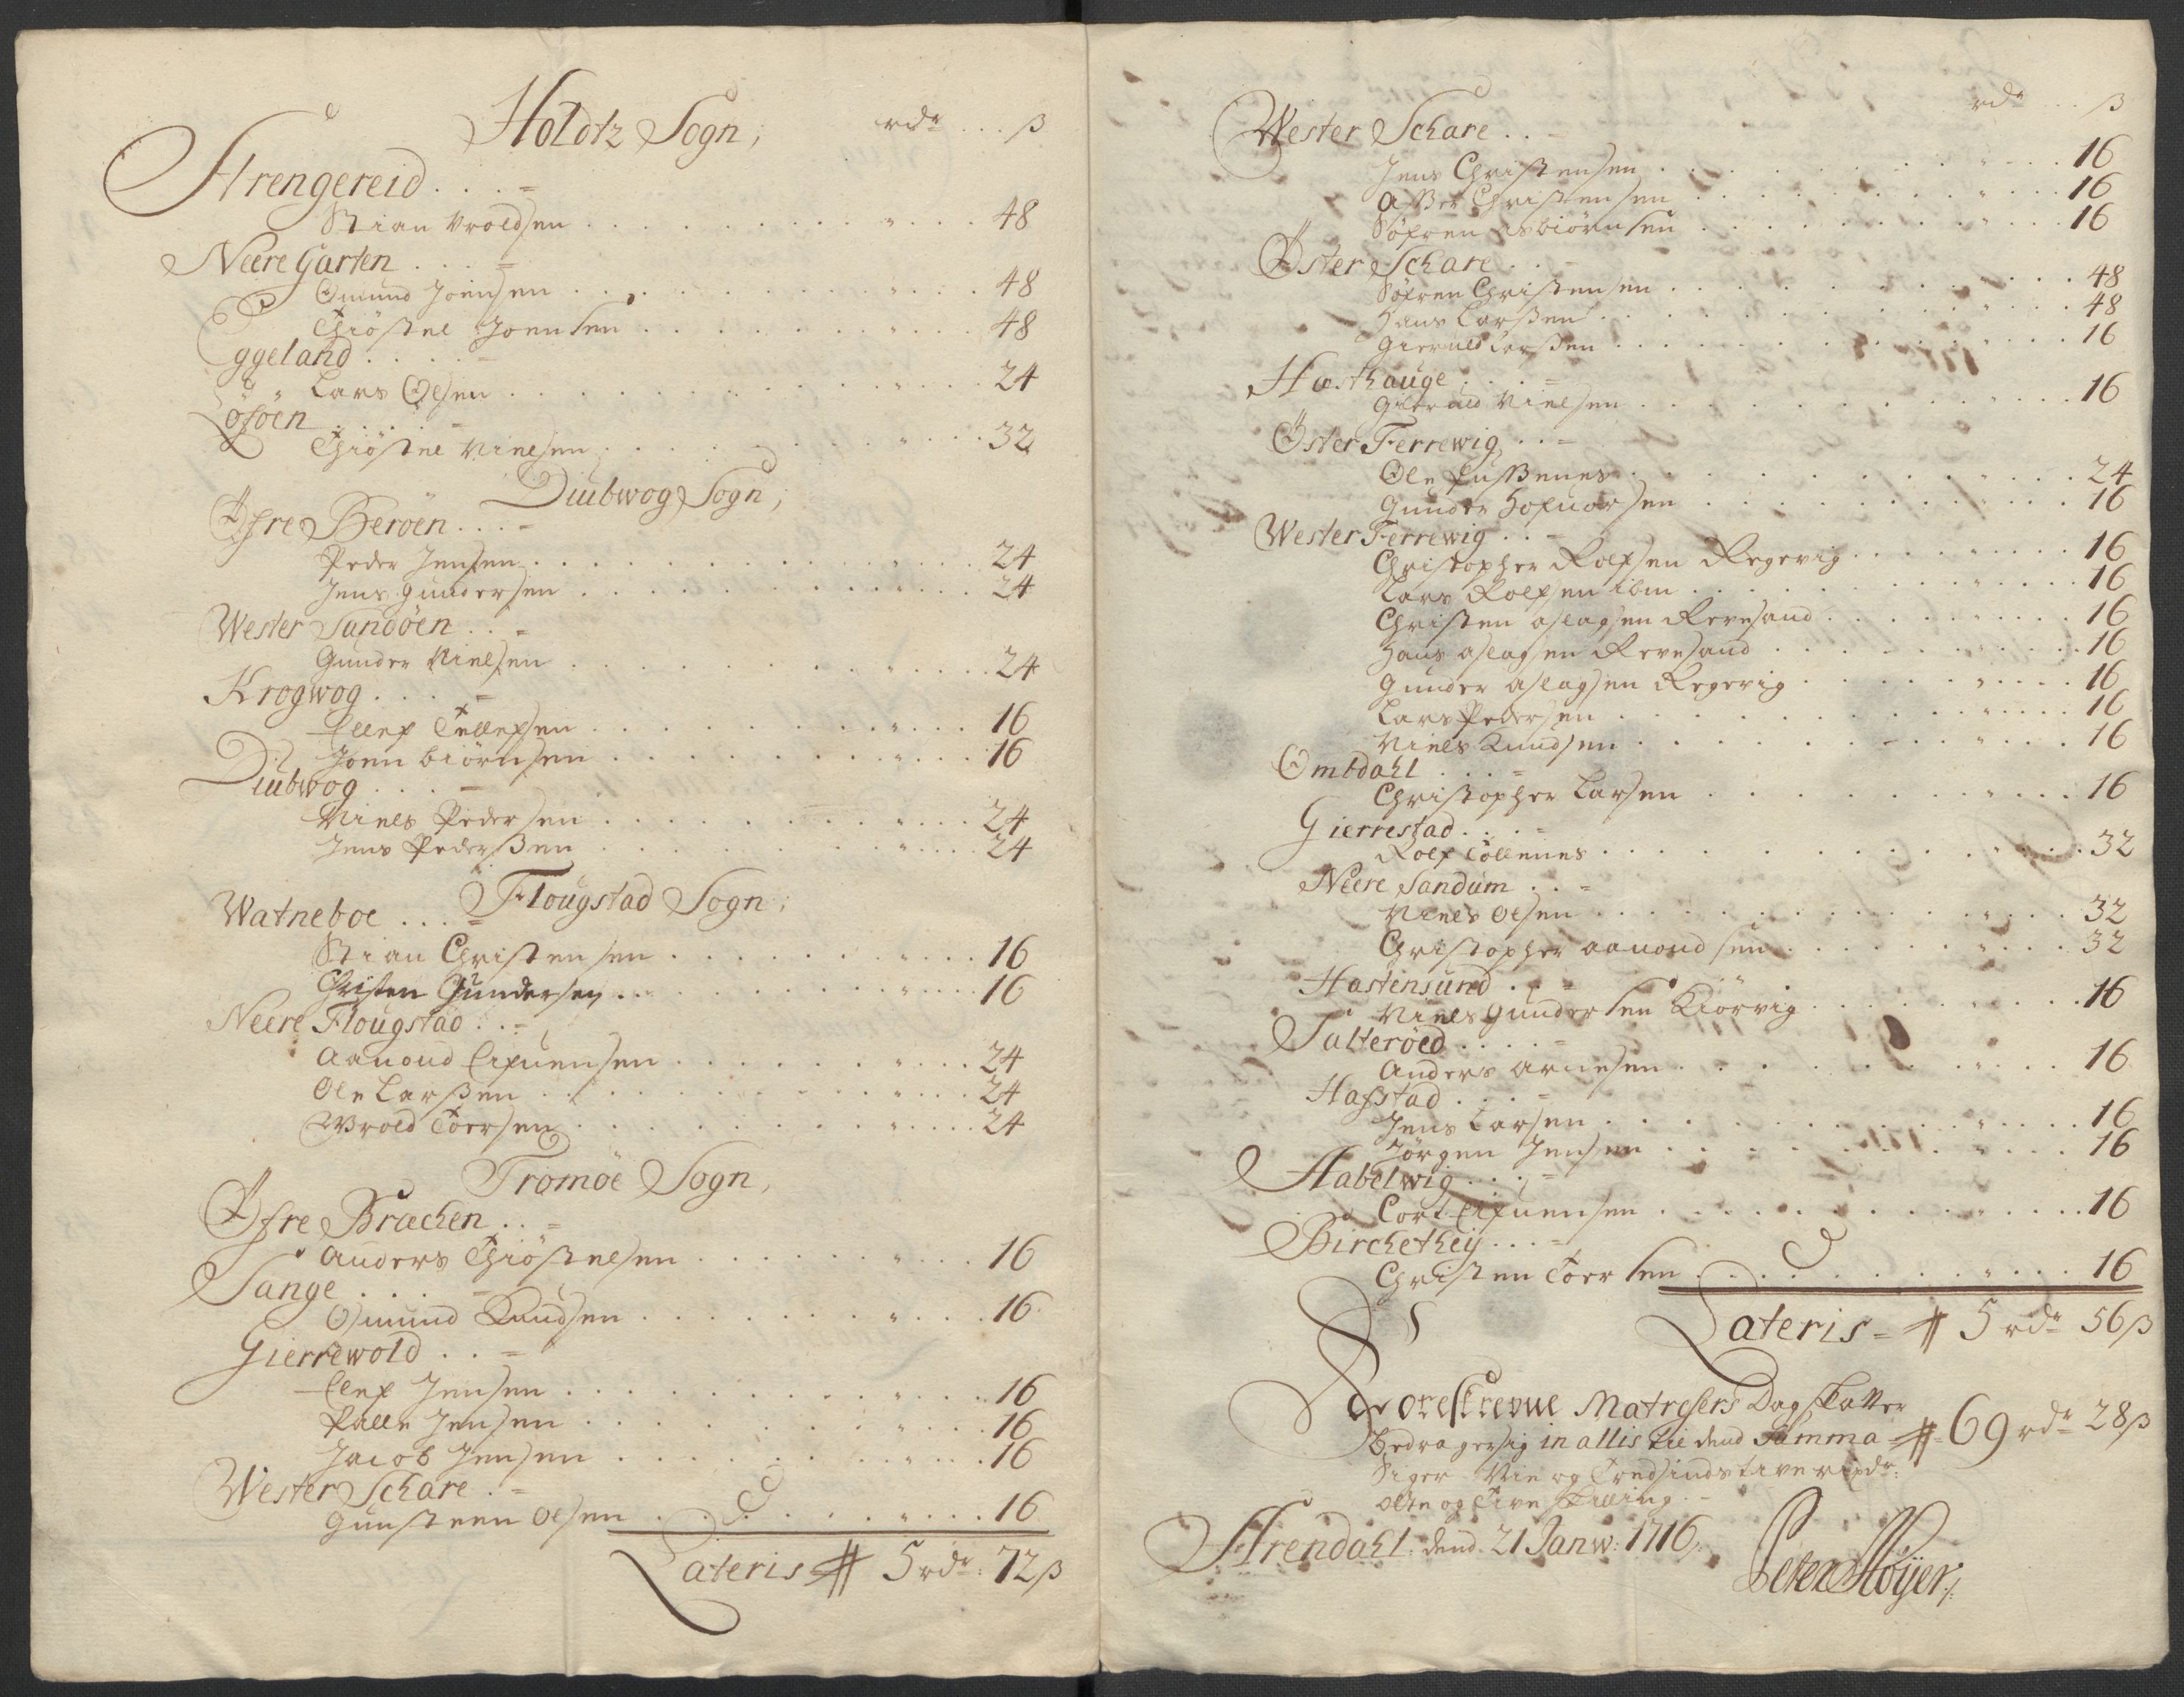 Holdtz Sogn,
rdr ... ß
Strengereid . . . =
Stian Wroldsen . . . 48
Neere Garten . . . =
Omund Joensen . . . 48
Thiøstel Joensen . . . 48
Eggeland . . . =
Lars Olsen . . . 24
Loföen . . . =
Thiøstel Nielsen . . . 32
Diubwog Sogn,
Øfre Beröen . . . =
Peder Jensen . . . 24
Jens Gundersen . . . 24
Wester Sandöen . . =
Gunder Nielsen . . . 24
Krogwog . . . =
Ellef Tellefsen . . . 16
Joen Biörnsen . . . 16
Diubwog . . . =
Niels Pedersen . . . 24
Jens Pederßen . . . 24
Flougstad Sogn,
Watneboe . . . =
Stian Christensen . . . 16
Christen Gundersen . . . 16
Neere Flougstad . . =
Aanond Eifuensen . . . 24
Ole Larßen . . . 24
Wrold Toersen . . . 24
Tromöe Sogn,
Øfre Bræchen . . =
Anders Thiøstelsen . . . 16
Sange . . . =
Osmund Knudsen . . . 16
Gierrewold . . =
Ellef Jensen . . . 16
Palle Jensen . . . 16
Jacob Jensen . . . 16
Wester Schare . =
Gunsteen Olsen . . . 16
Lateris # 5 rdr: 72 ß
rdr ... ß
Wester Schare . . =
Jens Christensen . . . 16
Aßer Christensen . . . 16
Söfren Asbiörnsen . . . 16
Øster Schare . . =
Söfren Christensen . . . 48
Hans Larßen . . . 48
Gieruld Larßen . . . 16
Hasthauge . . . =
Nielsen . . . 16
Øster Ferrewig . . =
Ole . . . 24
Gunder Hofuorsen . . . 16
Wester Ferrewig . . =
Christopher Rolfsen Regevig . . . 16
Lars Rolfsen ibm . . . 16
Christen Aslagsen Revesand . . . 16
Hans Aslagsen Revesand . . . 16
Gunder Aslagsen Regevig . . . 16
Lars Pedersen . . . 16
Niels Knudsen . . . 16
Ombdahl . . . =
Christopher Larsen . . . 16
Gierrestad . . . =
Rolf Töllenes . . . 32
Neere Sandum . . =
Niels Olsen . . . 32
Christopher Aanondsen . . . 32
Hastensund . . =
Niels Gundersen Kiörvig . . . 16
Salteröed . . . =
Anders Arnesen . . . 16
Hafstad . . . =
Jens Larsen . . . 16
Jörgen Jensen . . . 16
Habelwig . . . =
Cort Eifuensen . . . 16
Birchethey . . . =
Christen Toersen . . . 16
Lateris = # 5 rdr 56 ß
Forescrevne Matrosers Dagskatter
bedrager sig in allis til dend Summa # 69 rdr 28 ß
Siger Nie og Tredsindstive rixdr:
otte og Tive skilling
Arendahl dend 21 Janw: 1716,
Peter Höyer,